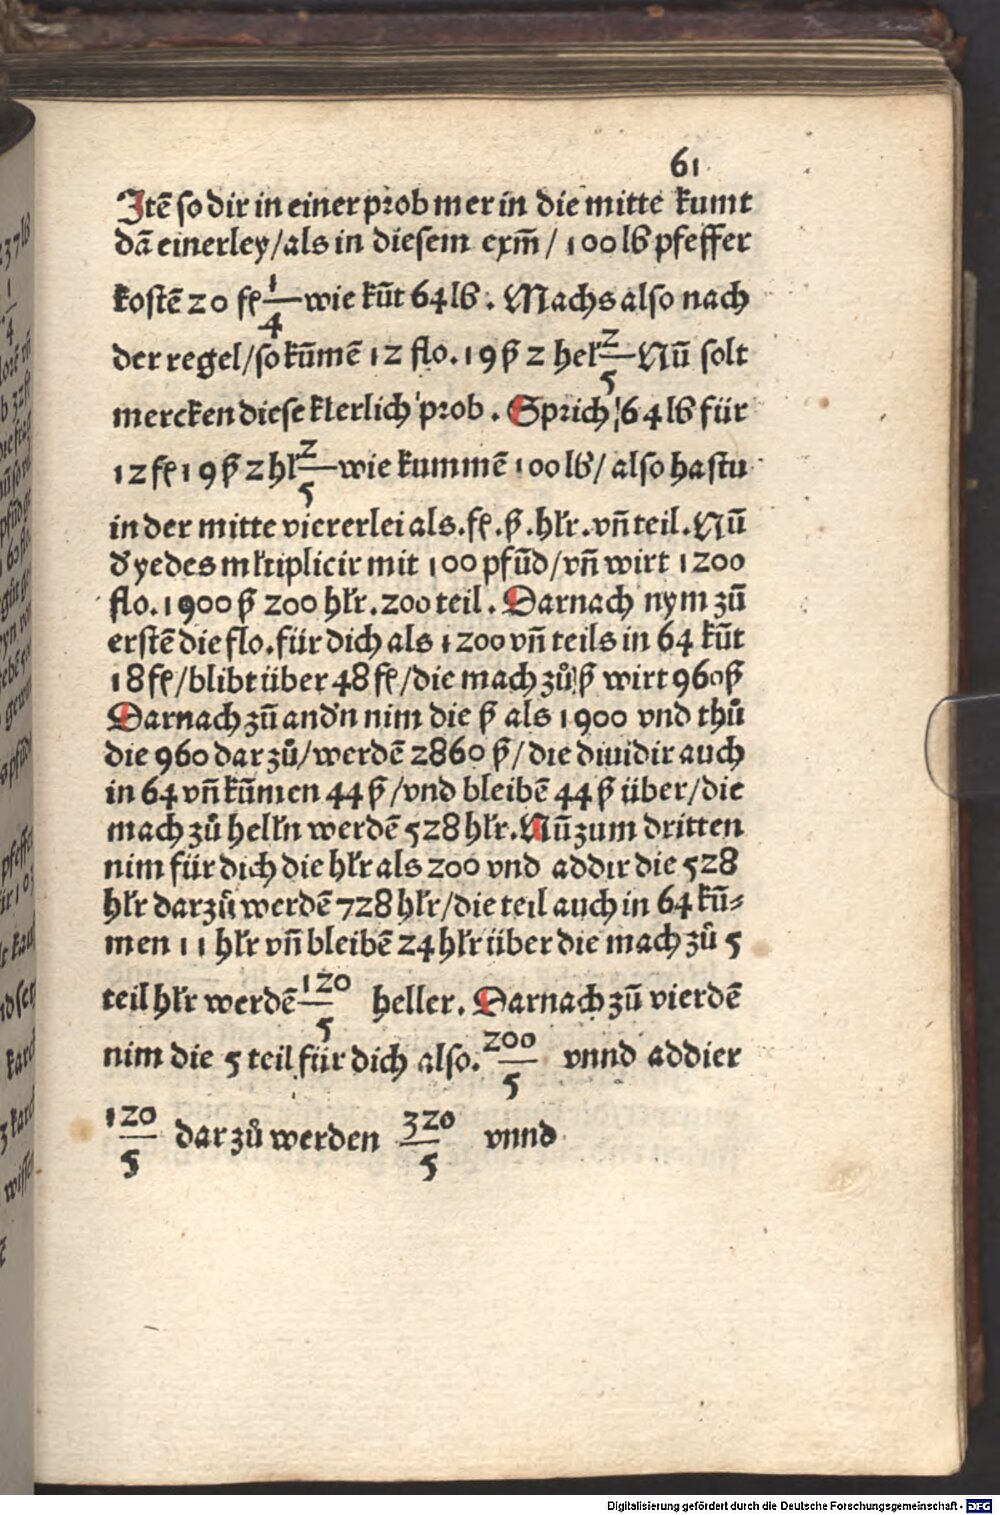 61
Itē so dir in einer prob mer in die mitte kumt
dā einerley/als in diesem exm̄/100 lb pfeffer
kostē 20 fl 1/4 wie kūt 64 lb. Machs also nach
der regel/so kūmē 12 flo. 19 ß 2 helr 2/5 Nū solt
mercken diese klerlich prob. Sprich 64 lb für
12 fl 19 ß 2 hlr 2/5 wie kummē 100 lb/ also hastu
in der mitte viererlei als. fl. ß. hlr. vn̄ teil. Nū
d yedes mltiplicir mit 100 pfūd/vn̄ wirt 1200
flo. 1900 ß 200 hlr. 200 teil. Darnach nym zū
erstē die flo. für dich als 1200 vn̄ teils in 64 kūt
18 fl/blibt über 48 fl/die mach zů ß wirt 960 ß
Darnach zū andn nim die ß als 1900 vnd thů
die 960 dar zů/werdē 2860 ß/die diuidir auch
in 64 vn̄ kūmen 44 ß/vnd bleibē 44 ß über/die
mach zů helln werdē 528 hlr. Nū zum dritten
nim für dich die hlr als 200 vnd addir die 528
hlr darzů werdē 728 hlr/die teil auch in 64 kū⸗
men 11 hlr vn̄ bleibē 24 hlr über die mach zů 5
teil hlr werdē 120/5 heller. Darnach zū vierdē
nim die 5 teil für dich also. 200/5 vnnd addier
120/5 dar zů werden 320/5 vnnd
Digitalisierung gefördert durch die Deutsche Forschungsgemeinschaft - DFG